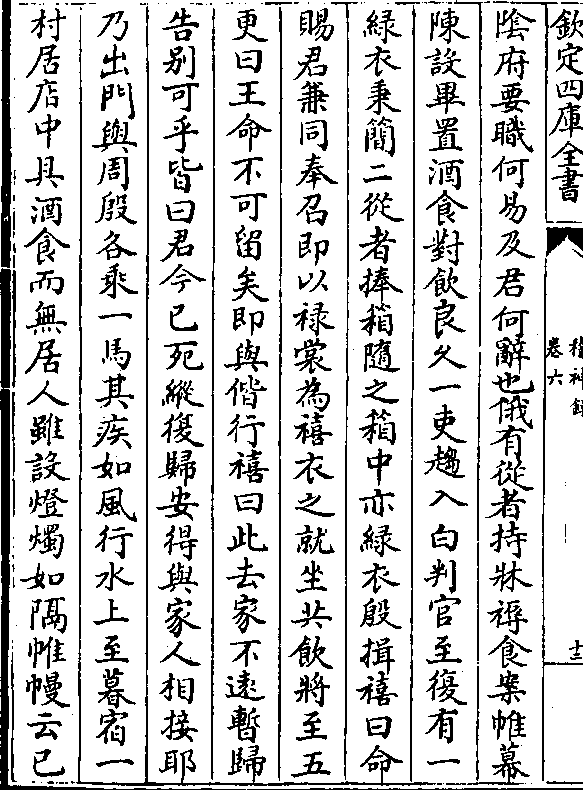 欽定四庫全書
稽神錄
卷六
十二
陰府要職何易及君何辭也俄有從者持牀褥食案帷幕
陳設畢置酒食對飲良久一吏趨入白判官至復有一
綠衣秉簡二從者捧箱隨之箱中亦綠衣殷揖禧曰命
賜君兼同奉召即以祿裳為禧衣之就坐共飲將至五
更曰王命不可留矣即與偕行禧曰此去家不遠暫歸
告别可乎皆曰君今已死縱復歸安得與家人相接耶
乃出門與周殷各乘一馬其疾如風行水上至暮宿一
村居店中具酒食而無居人雖設燈燭如隔帷幔云已